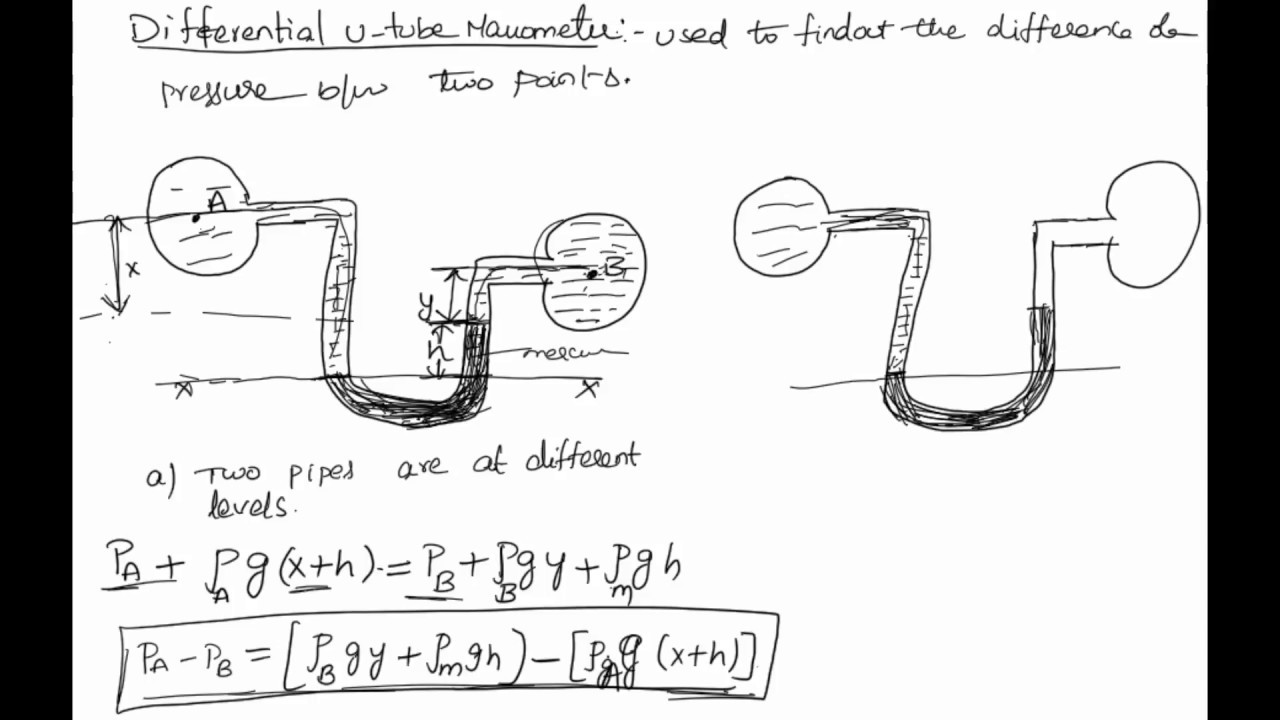 Differential U-tube Manometer:- used to findout the difference de
pressure b/w two points.
A
x
B
y
h
mercu
X X
a) Two pipes are at different
levels.
P_A + ρ_A g (x+h) = P_B + ρ_B g y + ρ_m g h
P_A - P_B = [ρ_B g y + ρ_m g h) - [ρ_A g (x+h)]